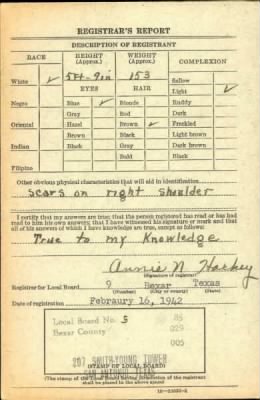 REGISTRAR'S REPORT
DESCRIPTION OF REGISTRANT
RACE HEIGHT (Approx.) WEIGHT (Approx.) COMPLEXION
White ✓ 5ft-9in 153 Sallow
EYES HAIR Light ✓
Negro Blue ✓ Blonde Ruddy
Gray Red Dark
Oriental Hazel Brown ✓ Freckled
Brown Black Light brown
Indian Black Gray Dark brown
Bald Black
Filipino
Other obvious physical characteristics that will aid in identification
Scars on right Shoulder
I certify that my answers are true; that the person registered has read or has had
read to him his own answers; that I have witnessed his signature or mark and that
all of his answers of which I have knowledge are true, except as follows:
True to my Knowledge
Annie N
(Signature of registrar)
Registrar for Local Board 9 Bexar Texas
(Number) (City or county) (State)
Date of registration Febraury 16, 1942
Local Board No. 5 85
Bexar County 029
005
207 SMITH-YOUNG TOWER
SAN ANTONIO, TEXAS
(STAMP OF LOCAL BOARD)
(The stamp of the Local Board having jurisdiction of the registrant
shall be placed in the above space)